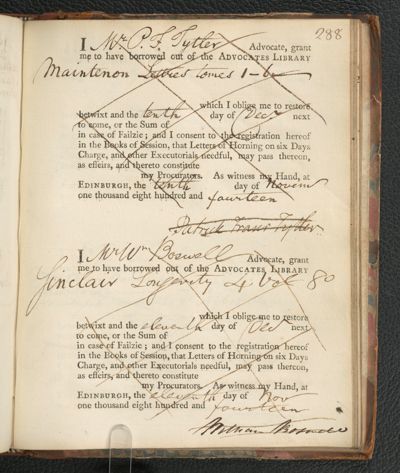 288
I Mr. P. F. Tytler Advocate, grant
me to have borrowed out of the ADVOCATES LIBRARY
Maintenon Lettres tomes 1-6
which I oblige me to restore
betwixt and the tenth day of Decr next
to come, or the Sum of
in case of Failzie; and I consent to the registration hereof
in the Books of Session, that Letters of Horning on six Days
Charge, and other Executorials needful, may pass thereon,
as effeirs, and thereto constitute
my Procurators. As witness my Hand, at
EDINBURGH, the tenth day of Novem
one thousand eight hundred and fourteen
Patrick Fraser Tytler
I Mr Wm Boswell Advocate, grant
me to have borrowed out of the ADVOCATES LIBRARY
Sinclair Longevity 4 vol 8o
which I oblige me to restore
betwixt and the eleventh day of Decr next
to come, or the Sum of
in case of Failzie; and I consent to the registration hereof
in the Books of Session, that Letters of Horning on six Days
Charge, and other Executorials needful, may pass thereon,
as effeirs, and thereto constitute
my Procurators. As witness my Hand, at
EDINBURGH, the eleventh day of Nov
one thousand eight hundred and fourteen
William Boswell